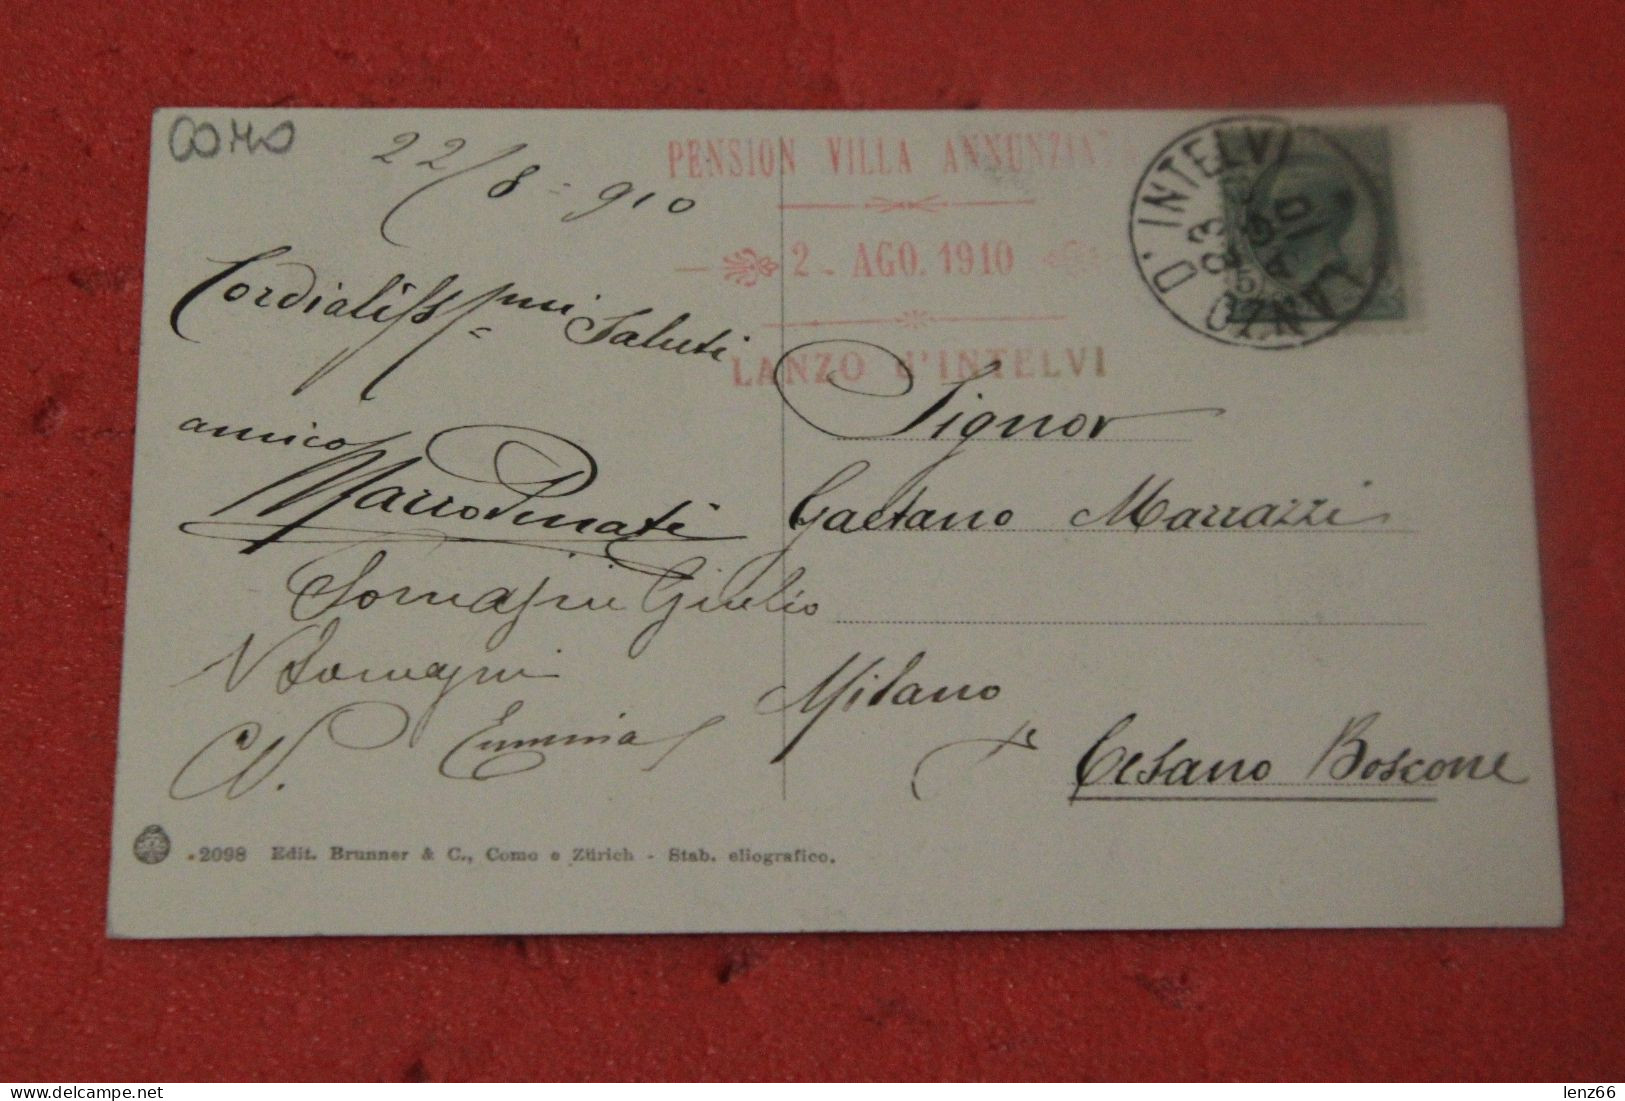 COMO
22/8 = 910
PENSION VILLA ANNUNZIA
2 - AGO. 1910
LANZO d'INTELVI
LANZO D'INTELVI
Cordialissimi Saluti
amico
Signor
Gaetano Marrazzi
Giulio
Milano
Emma
Cesano Boscone
2098 Edit. Brunner & C., Como e Zürich - Stab. eliografico.
lenz66